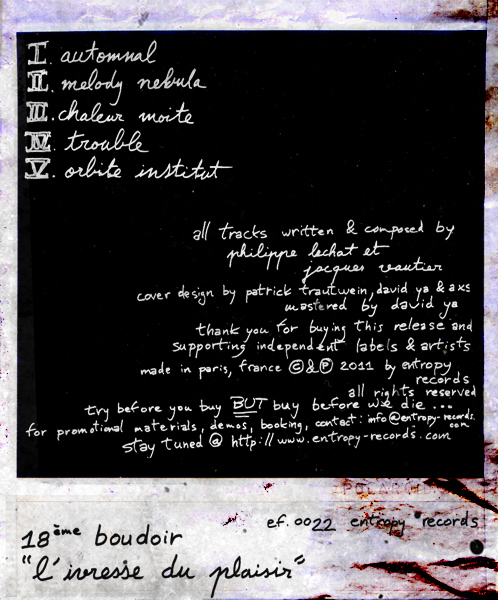 I. automnal
II. melody nebula
III. chaleur moite
IV. trouble
V. orbite institut
all tracks written & composed by
philippe lechat et
jacques vautier
cover design by patrick trautwein, david ya & axs
mastered by david ya
thank you for buying this release and
supporting independent labels & artists
made in paris, france © & ℗ 2011 by entropy
records
all rights reserved
try before you buy BUT buy before we die ...
for promotional materials, demos, booking, contact: info@entropy-records.
com
stay tuned @ http://www.entropy-records.com
ef. 0022 entropy records
18ème boudoir
"l'ivresse du plaisir"